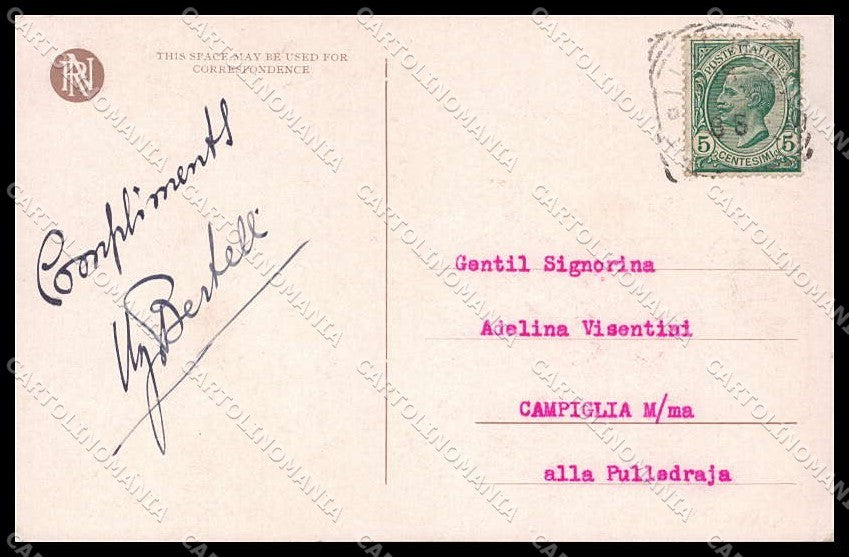 THIS SPACE MAY BE USED FOR
CORRESPONDENCE
POSTE ITALIANE
5 CENTESIMI 5
Compliments
Bertelli
Gentil Signorina
Adelina Visentini
CAMPIGLIA M/ma
alla Pulledraja
CARTOLINOMANIA